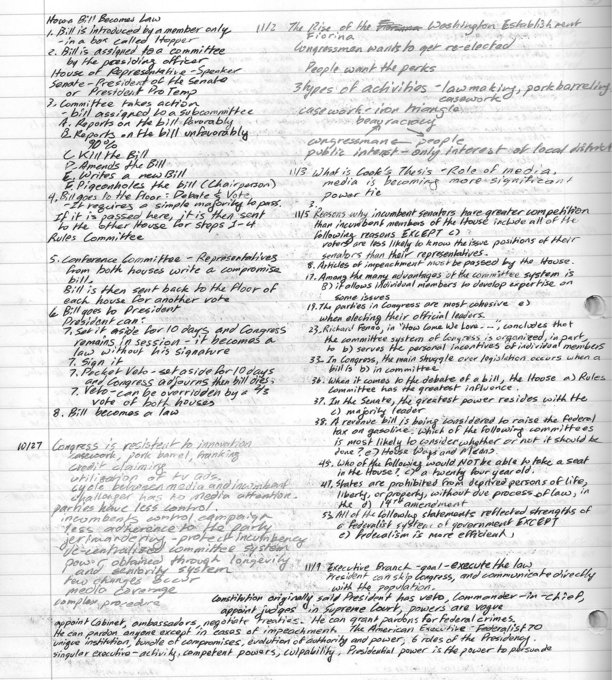 How a Bill Becomes Law
1. Bill is introduced by a member only
- in a box called Hopper
2. Bill is assigned to a committee
by the presiding officer
House of Representative - Speaker
Senate - President of the Senate
or President Pro Temp
3. Committee takes action
- bill assigned to a subcommittee
A. Reports on the bill favorably
B. Reports on the bill unfavorably
90%
C. Kill the Bill
D. Amends the Bill
E. Writes a new Bill
F. Pigeonholes the bill (Chairperson)
4. Bill goes to the floor: Debate & Vote
- It requires a simple majority to pass.
If it is passed here, it is then sent
to the other House for steps 1-4
Rules Committee
5. Conference Committee - Representatives
from both houses write a compromise
bill.
Bill is then sent back to the floor of
each house for another vote
6. Bill goes to President
President can:
7. Set it aside for 10 days and Congress
remains in session - it becomes a
law without his signature
7. Sign it
7. Pocket Veto - set aside for 10 days
and Congress adjourns then bill dies.
7. Veto - can be overridden by a
vote of both houses
8. Bill becomes a law
10/27 Congress is resistent to innovation
casework, pork barrel, franking
credit claiming
utilization of tv ads.
cycle between media and incumbent
challenger has no media attention.
parties have less control.
incumbents control campaign
less adherence to the party
jerrimandering - protect incumbency
de-centralised committee system
power obtained through longevity
and seniority system
few changes occur
media coverage
complex procedure
11/2 The Rise of the Washington Establishment
Fiorina
Congressman wants to get re-elected
People want the perks
3 types of activities - law making, pork barreling
casework
casework - iron triangle
beauracracy
congressman people
public interest - only interest of local district
11/3 What is Cook's Thesis - Role of media,
media is becoming more significant
power tie
3.
11/5 Reasons why incumbent senators have greater competition
than incumbent members of the House include all of the
following reasons EXCEPT c)
voters are less likely to know the issue positions of their
senators than their representatives.
8. Articles of impeachment must be passed by the House.
17. Among the many advantages of the committee system is
B) it allows individual members to develop expertise on
some issues
19. The parties in Congress are most cohesive e)
when electing their official leaders.
23. Richard Fenno, in "How Come We Love...", concludes that
the committee system of Congress is organized, in part,
to b) serves the personal incentives of individual members
33. In Congress, the main struggle over legislation occurs when a
bill is b) in committee
36. When it comes to the debate of a bill, the House a) Rules
committee has the greatest influence.
37. In the Senate, the greatest power resides with the
c) majority leader
38. A revenue bill is being considered to raise the federal
tax on gasoline. Which of the following committees
is most likely to consider whether or not it should be
done? e) House Ways and Means.
45. Who of the following would NOT be able to take a seat
in the House? c) a twenty four year old.
47. States are prohibited from deprived persons of life,
liberty, or property, without due process of law, in
the d) 14th amendment
53. All of the following statements reflected strengths of
a federalist system of government EXCEPT
e) Federalism is more efficient,
11/9 Executive Branch - goal - execute the law
President can skip Congress, and communicate directly
with the population.
Constitution originally said President has veto, Commander-in-Chief,
appoint judges in Supreme Court, powers are vague
appoint Cabinet, ambassadors, negotiate treaties. He can grant pardons for federal crimes.
He can pardon anyone except in cases of impeachment. The American Executive - Federalist 70
unique institution, bundle of compromises, evolution of authority and power, 6 roles of the Presidency.
singular executive - activity, competent powers, culpability. Presidential power is the power to persuade